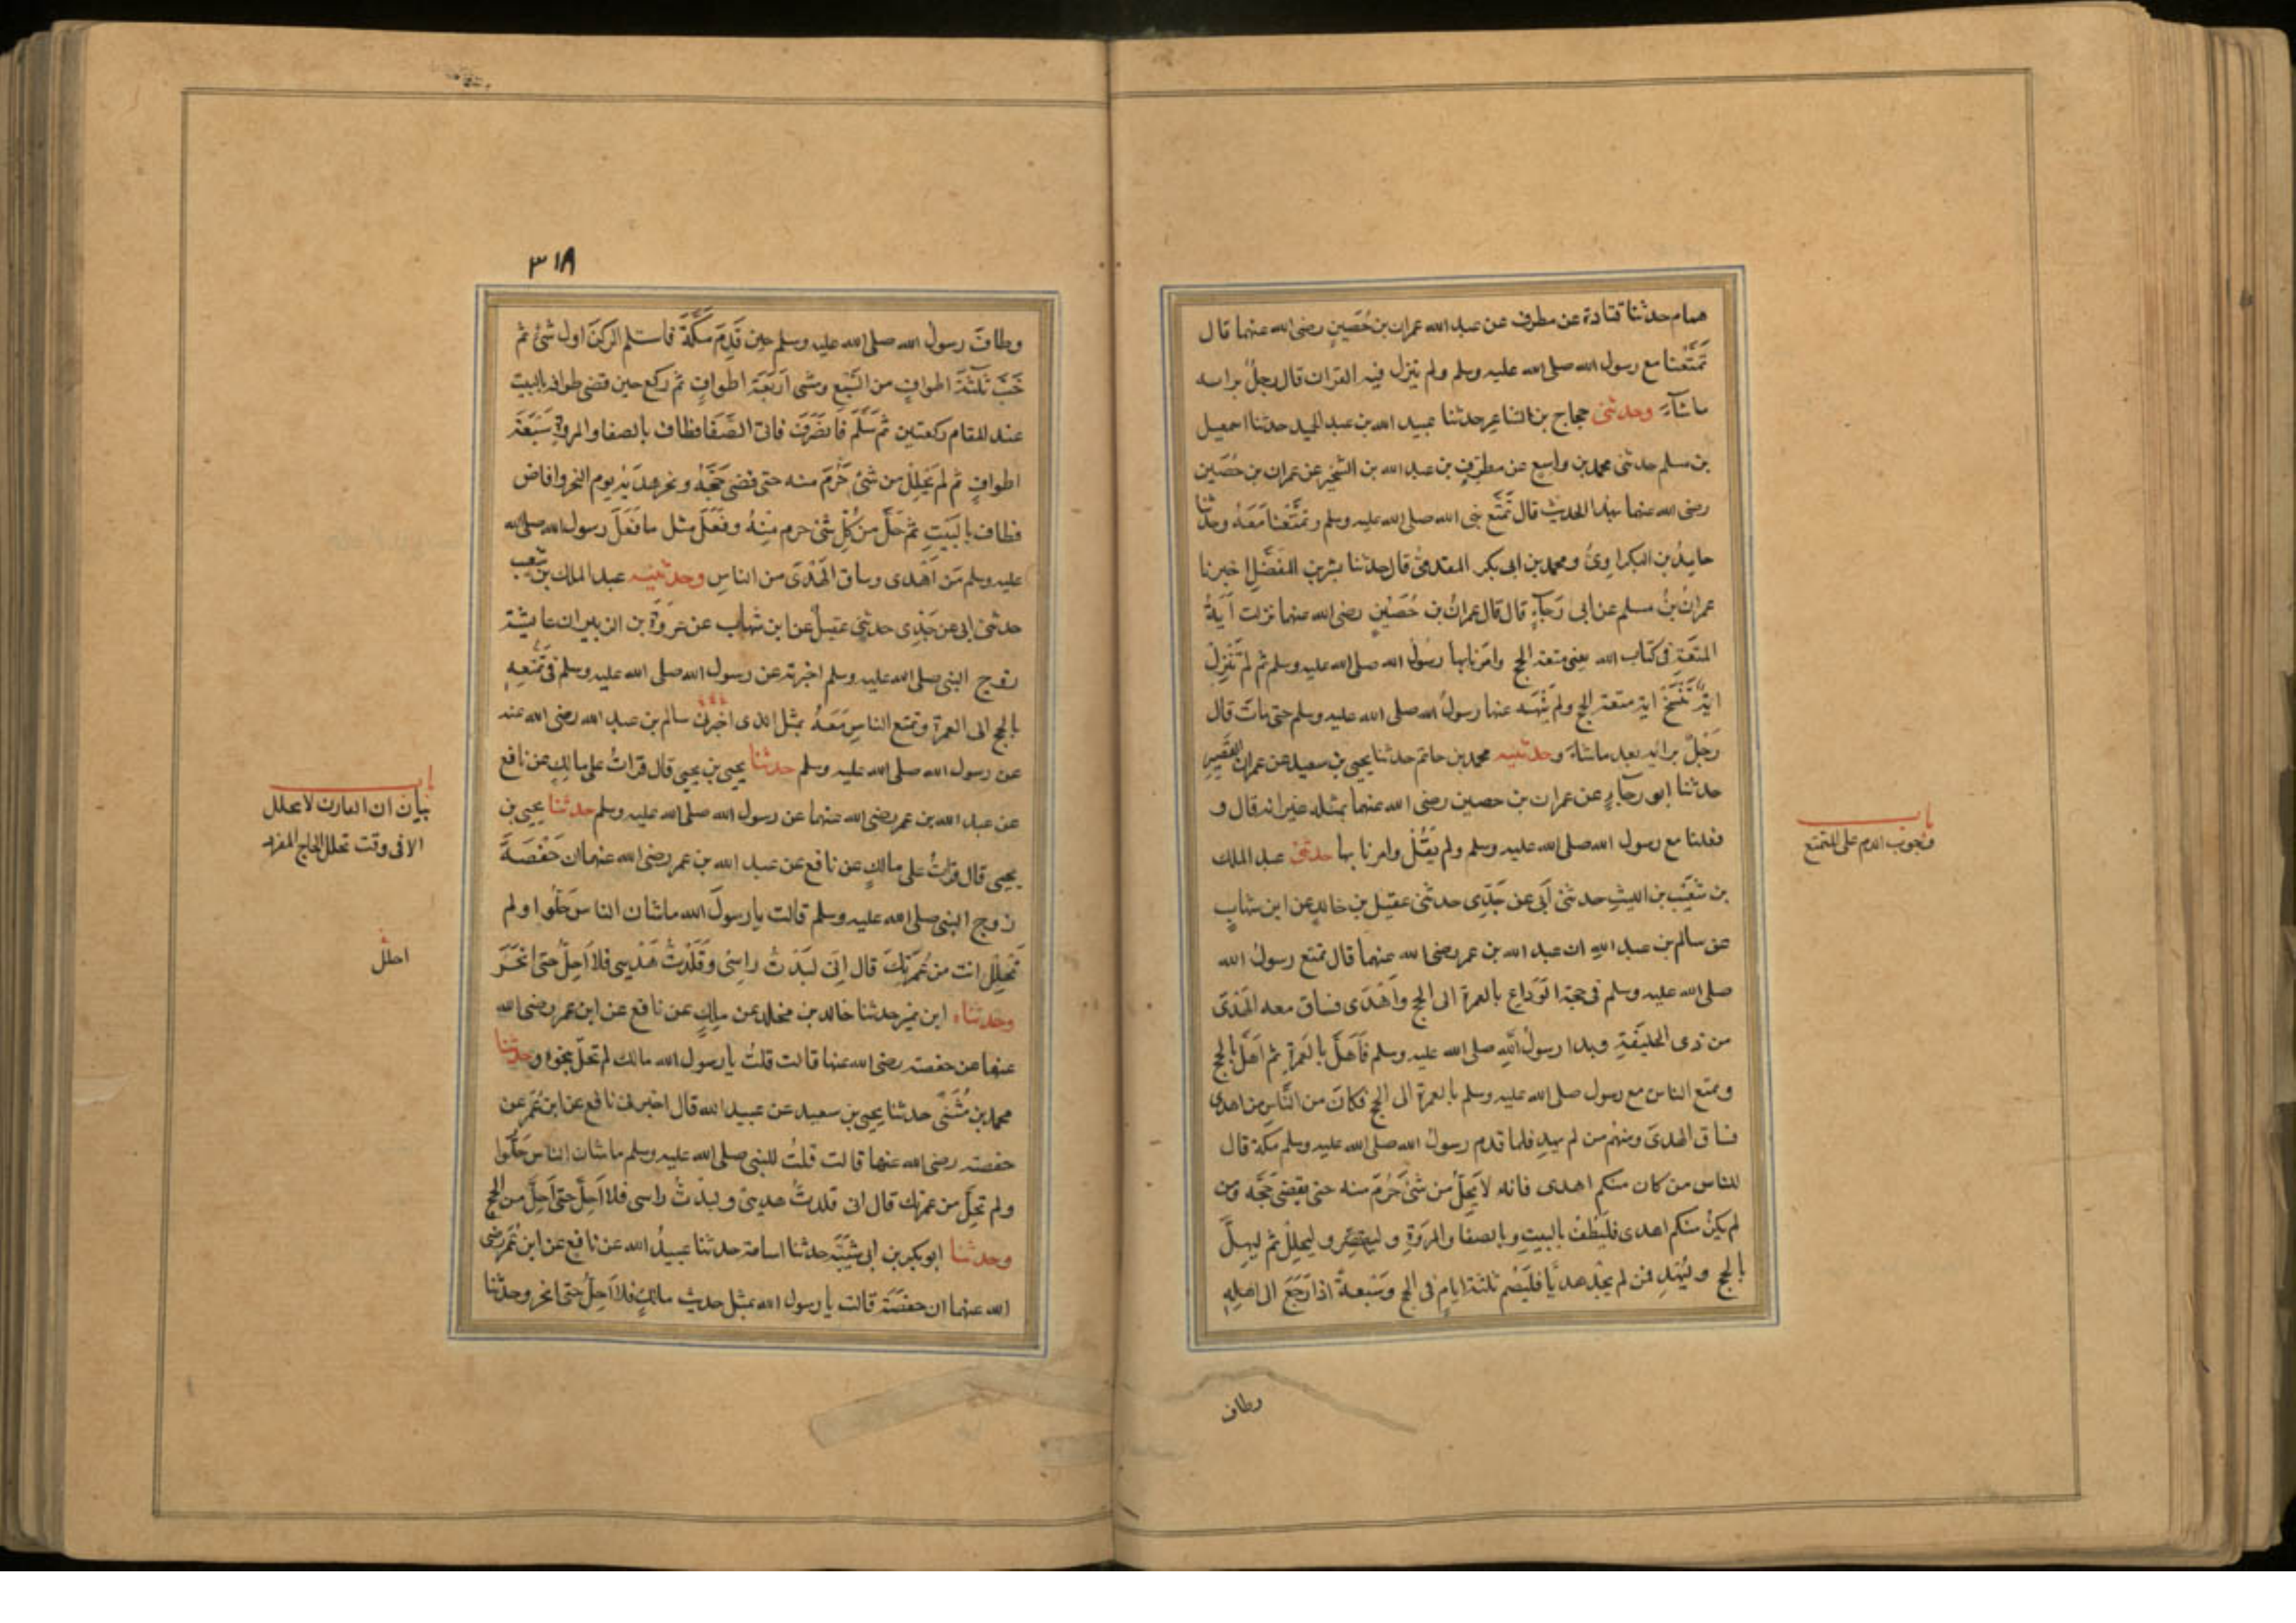 همام حدثنا قتادة عن مطرف عن عبد الله عمران بن حُصَينٍ رضى الله عنهما قال
تَمَتَّعنا مع رسول الله صلى الله عليه وسلم ولم ينزل فيه القران قال رجلٌ برايه
ماشآءَ وحدثنى حجاج بن الشاعر حدثنا عبيد الله بن عبد المجيد حدثنا اسمعيل
بن مسلم حدثنى محمد بن واسع عن مطرفٍ بن عبد الله بن الشخير عن عمران بن حُصَين
رضى الله عنهما بهذا الحديث قال تَمَتَّع نبى الله صلى الله عليه وسلم وتمتَّعنا مَعَهُ وحدثنا
حامِدُ بن البكراوىُّ ومحمد بن ابى بكر المقدمىُّ قال حدثنا بشر بن المفَضَّلِ اخبرنا
عمرانُ بنُ مسلم عن ابى رَجآءٍ قال قال عمرانُ بن حُصَيْنٍ رضى الله عنهما نزلت آيَةُ
المتعَةِ فى كتاب الله يعنى متعة الحج وامَرَنا بها رسُولُ الله صلى الله عليه وسلم ثم لم تَنْزِل
ايةٌ تَنْسَخُ اية متعة الحج ولم يَنْهَ عنها رسولُ الله صلى الله عليه وسلم حتى مات قال
رَجُلٌ برايه بعد ماشاءَ وحدثنيه محمد بن حاتم حدثنا يحيى بن سعيد عن عمران القَصِيرِ
حدثنا ابو رجآءٍ عن عمران بن حصين رضى الله عنهما بمثله غير انه قال و
فعلنا مع رسول الله صلى الله عليه وسلم ولم يَقُل وامرنا بها حدثنى عبد الملك
بن شعَيْب بن الليثِ حدثنى أبى عن جَدّى حدثنى عقيل بن خالدٍ عن ابن شهابٍ
عن سالم بن عبد اللهِ ان عبد الله بن عمر رضى الله عنهما قال تمتع رسولُ الله
صلى الله عليه وسلم فى حجة الوَدَاعِ بالعمرة الى الحج وأَهْدَى فساق معه الهَدْىَ
من ذى الحليفَةِ وبدا رسولُ اللهِ صلى الله عليه وسلم فَأَهَلَّ بالعُمرةِ ثم أَهَلَّ بالحج
وتمتع الناس مع رسول صلى الله عليه وسلم بالعمرة الى الحج فكانَ من النَّاسِ من اهدى
فساق الهدىَ ومنهُم من لم يهدِ فلما قدم رسولُ الله صلى الله عليه وسلم مكة قال
للناس من كان منكم اهدى فانه لا يَحِلُّ من شئٍ حَرُمَ منه حتى يقضى حَجَّه ومن
لم يكنْ منكم اهدى فليَطُفْ بالبيتِ وبالصفا والمرْوَةِ وليقصِّر وليحلِلْ ثم ليهِلَّ
بالحج وليُهْدِ فمن لم يجدْ هديًا فليَصُم ثلثةَ ايامٍ فى الحج وسَبْعةً اذا رَجَعَ الى اهلِهِ
باب
وجوب الدم على المتمتع
وطاف
٣١٨
وطافَ رسولُ الله صلى الله عليه وسلم حين قَدِمَ مكَّةَ فاستلم الركنَ اول شئٍ ثم
خَبَّ ثلثَةَ اطوافٍ من السَّبْعِ ومشى اَرْبَعَةَ اطوافٍ ثم ركع حين قضى طوافه بالبيت
عند المقام ركعتين ثم سَلَّمَ فانصَرَفَ فاتى الصَّفا فطاف بالصفا والمروةِ سَبْعَةَ
اطوافٍ ثم لم يَحْلِلْ من شئٍ حَرُمَ منه حتى قضى حَجَّهُ ونحر هدَيَهُ يوم النحر وافاض
فطاف بالبَيتِ ثم حَلَّ من كُلِّ شئٍ حرم مِنهُ وفَعَلَ مثل ما فَعَلَ رسول الله صلى الله
عليه وسلم مَن اَهْدى وساق الهَدْىَ من الناسِ وحدثنيه عبد الملك بن شعيب
حدثنى ابى عن جَدّى حدثنى عقيلٌ عن ابن شهاب عن عروَةَ بن الزبير ان عايشة
زوج النبى صلى الله عليه وسلم اخبرته عن رسول الله صلى الله عليه وسلم فى تَمَتُّعِهِ
بالحج الى العمرة وتمتع الناس مَعَهُ بمثل الذى اخبرنى سالم بن عبد الله رضى الله عنه
عن رسول الله صلى الله عليه وسلم حدثنا يحيى بن يحيى قال قرأتُ على مالِكٍ عن نافع
عن عبد الله بن عمر رضى الله عنهما عن رسول الله صلى الله عليه وسلم حدثنا يحيى بن
يحيى قال قراتُ على مالكٍ عن نافع عن عبد الله بن عمر رضى الله عنهما ان حَفْصَةَ
زوج النبى صلى الله عليه وسلم قالت يا رسولَ الله ماشان الناس حَلُّوا ولم
تَحلِلْ انت من عُمْرَتِكَ قال إنى لبَّدْتُ راسى وقَلَّدْتُ هَدْيى فلا اَحِلُّ حتى اَنْحَرَ
وحدثناه ابن نمير حدثنا خالد بن مخلد عن مالِكٍ عن نافع عن ابن عمر رضى الله
عنهما عن حفصة رضى الله عنها قالت قلتُ يا رسول الله مالك لم تحلَّ بنحوِه وحدثنا
محمد بن مُثَنَّى حدثنا يحيى بن سعيد عن عبيد الله قال اخبرنى نافع عن ابن عُمَرَ عن
حفصة رضى الله عنها قالت قلتُ للنبى صلى الله عليه وسلم ماشان الناس حَلُّوا
ولم تحِلَّ من عمرتك قال انى قلدتُ هديى ولبدْتُ راسى فلا اَحِلُّ حتى اَحِلَّ من الحج
وحدثنا ابو بكر بن ابى شَيْبَةَ حدثنا اسامة حدثنا عبيدُ الله عن نافع عن ابن عُمَر رضى
الله عنهما ان حفصَةَ قالت يا رسول الله بمثل حديث مالكٍ فلا اَحِلُّ حتى انحر وحدثنا
باب
بيان ان القارن لا يحلل
الا فى وقت تحلل الحاج المفرد
احلل